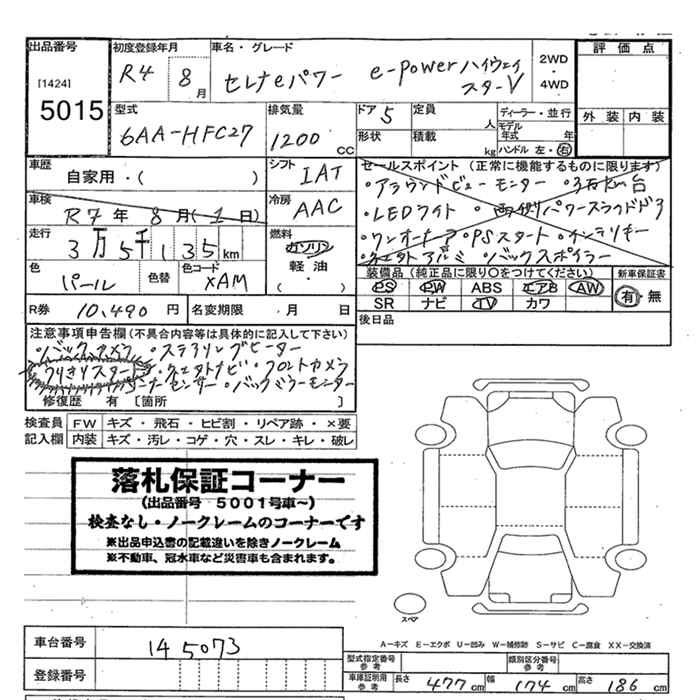 出品番号 初度登録年月 車名・グレード 評価点
[1424] R4 8月 セレナeパワー e-powerハイウェイスターV 2WD・4WD
5015
外装 内装
型式 排気量 ドア 5 定員 人 ディーラー・並行
6AA-HFC27 1200 CC 形状 積載 kg モデル年式 年
ハンドル 左・右
車歴 シフト セールスポイント(正常に機能するものに限ります)
自家用・( ) IAT ・アラウンドビューモニター
車検 冷房 ・LEDライト ・両側パワースライドドア
R7年 8月( 日) AAC ・ワンオーナー ・PSスタート ・インテリキー
走行 燃料 ・バックスポイラー
3万5千135km ガソリン
軽油
・( )
色 色替 色コード 装備品(純正品に限り○をつけてください) 新車保証書
パール XAM PS PW ABS エアB AW 有・無
SR ナビ TV カワ
R券 10,490円 名変期限 ・月 日 後日品
注意事項申告欄(不具合内容等は具体的に記入して下さい)
・バックカメラ ・ステアリングヒーター
・フロントカメラ
修復歴 有〔箇所 〕
検査員記入欄 FW キズ・飛石・ヒビ割・リペア跡・×要
内装 キズ・汚レ・コゲ・穴・スレ・キレ・破レ
落札保証コーナー
(出品番号 5001号車~)
検査なし・ノークレームのコーナーです
※出品申込書の記載違いを除きノークレーム
※不動車、冠水車など災害車も含まれます。
スペア
A-キズ E-エクボ U-凹み W-補修跡 S-サビ C-腐食 XX-交換済
車台番号 145073
型式指定番号 参考 類別区分番号 参考
登録番号 車庫証明用 参考 長さ 477cm 幅 174cm 高さ 186cm